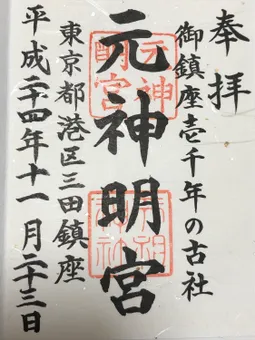 奉拝
御鎮座壱千年の古社
元神明宮
東京都港区三田鎮座
平成二十四年十一月二十三日